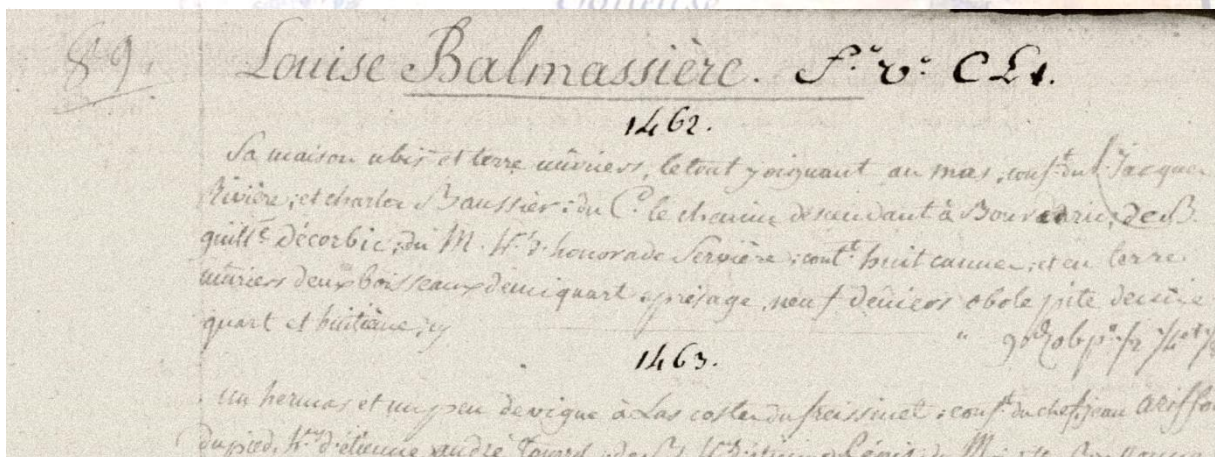 89. Louise Balmassière. f.e v.e C L t.
1462.
Sa maison ubis et terre mûriers, le tout joignant au mas, conf.t du l. Jacques
Rivière, et charles Baussier: du C. le chemin descendant à de B.
guill.e Décorbie, du M. h.rs d'honorade Servière; cont.t huit cannes, et en terre
mûriers deux boisseaux demi quart; présage, neuf deniers obole pite demie
quart et huitième, cy
1463.
un hermas et un peu de vigne à Las costes du freissinet: conf.t du chef, jean
du pied, h.rs d'étienne andré de M.